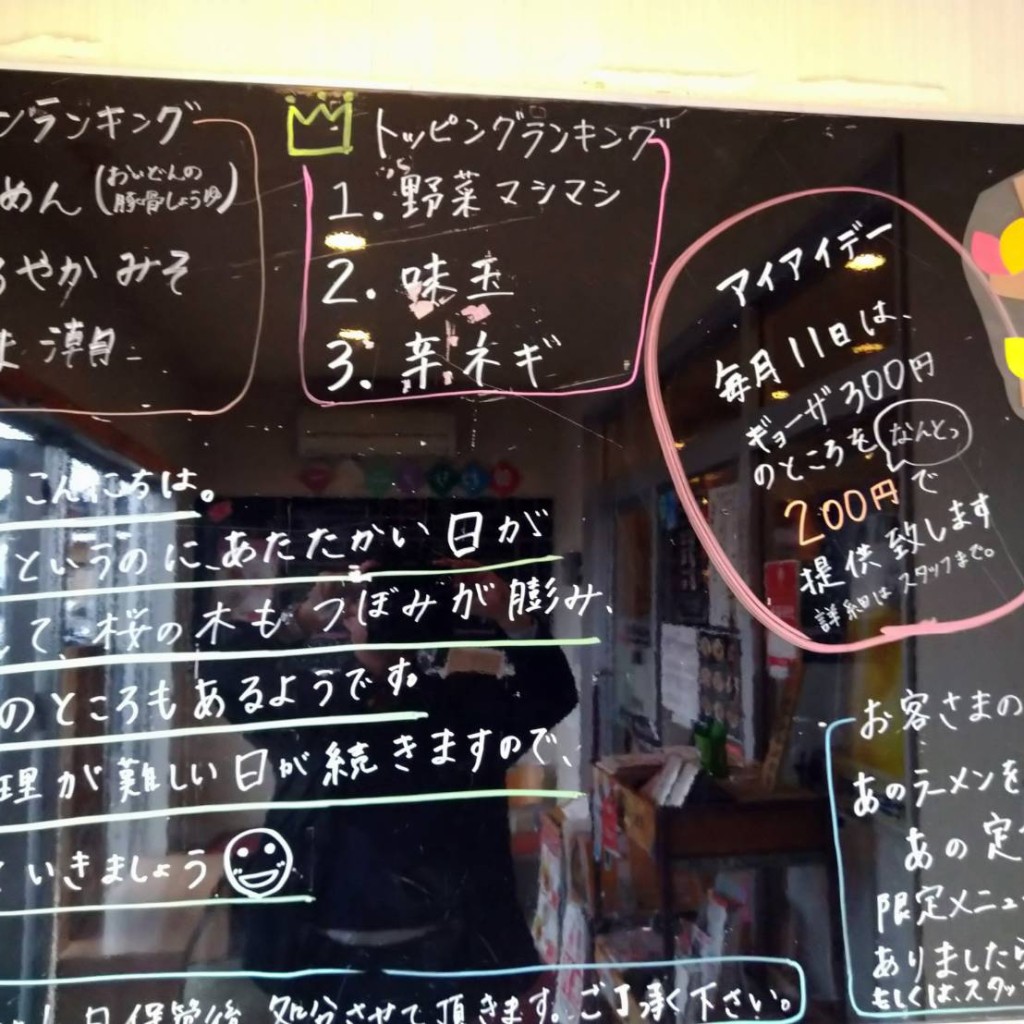 ンランキング
めん(おいどんの
豚骨しょうゆ)
ろやか みそ
潮
トッピングランキング
1. 野菜マシマシ
2. 味玉
3. 辛ネギ
アイアイデー
毎月11日は、
ギョーザ300円
のところを なんとっ
200円で
提供致します
詳細はスタッフまで。
こんにちは。
というのに、あたたかい日が
て、桜の木もつぼみが膨み、
のところもあるようです。
理が難しい日が続きますので、
いきましょう
お客さまの
あのラーメンを
あの定
限定メニュー
ありましたら
もしくは、スタッ
日保管後、処分させて頂きます。ご了承下さい。